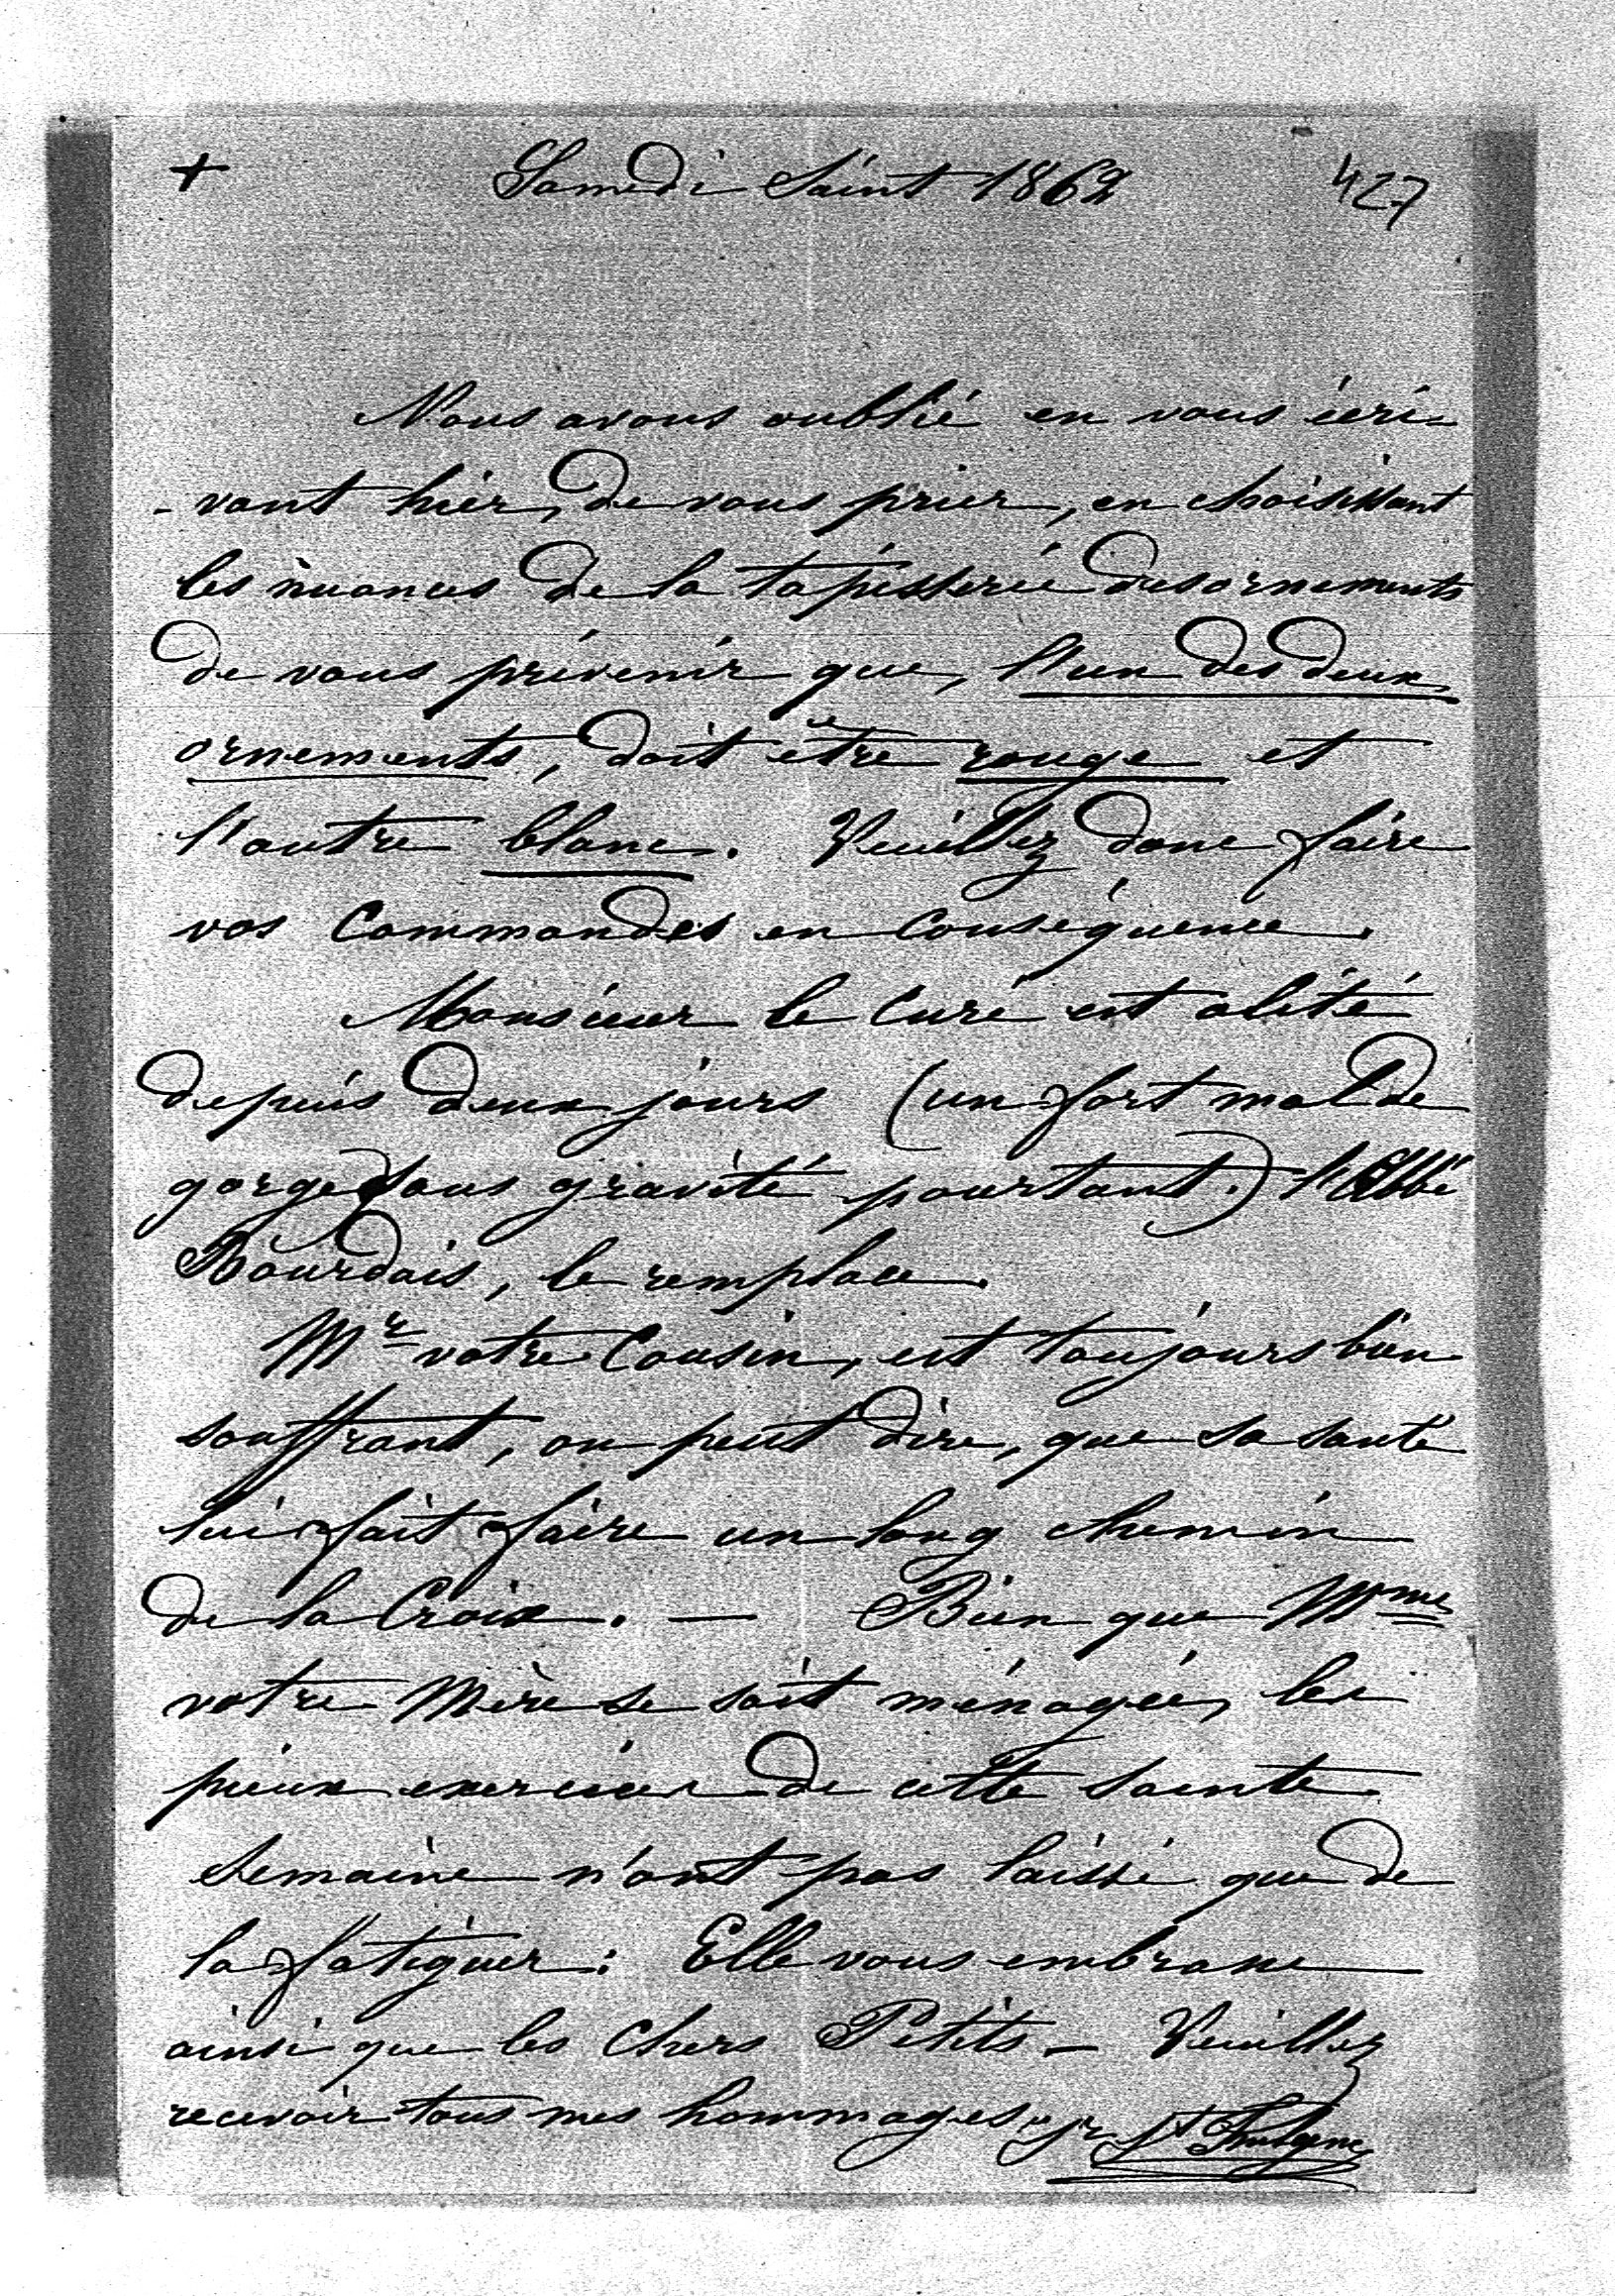 + Samedi Saint 1862 427
Nous avons oublié en vous écri-
-vant hier, de vous prier, en choisissant
les nuances de la tapisserie des ornements
de vous prévenir que, l'un des deux
ornements, doit être rouge et
l'autre blanc. Veuillez donc faire
vos Commandes en Conséquence.
Monsieur le Curé est alité
depuis deux jours (un fort mal de
gorge sans gravité pourtant.) l'Abbé
Bourdais, le remplace.
Mr votre Cousin, est toujours bien
souffrant, on peut dire, que sa santé
lui fait faire un long chemin
de la Croix. — Bien que Mme
votre Mère se soit ménagée, les
pieux exercices de cette Sainte
Semaine n'ont pas laissé que de
la fatiguer: Elle vous embrasse
ainsi que les Chers Petits — Veuillez
recevoir tous mes hommages. Sr St Fulgence